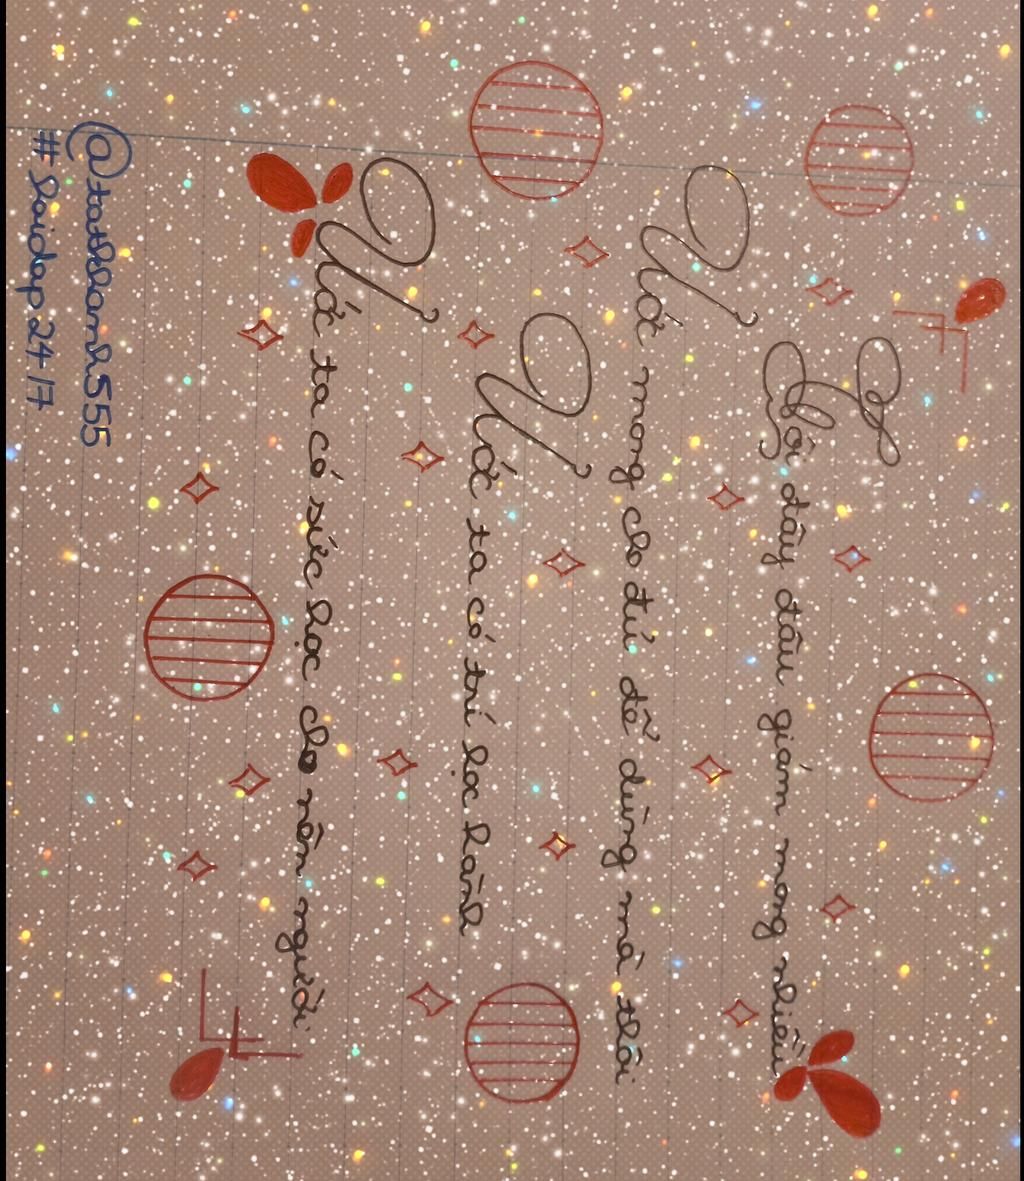 Tôi đây đâu giám mong nhiều
Ước mong cho đủ để dùng mà thôi
Ước ta có trí học hành
Ước ta có sức học cho nên người.
@tatthanh555
# haidap24/7